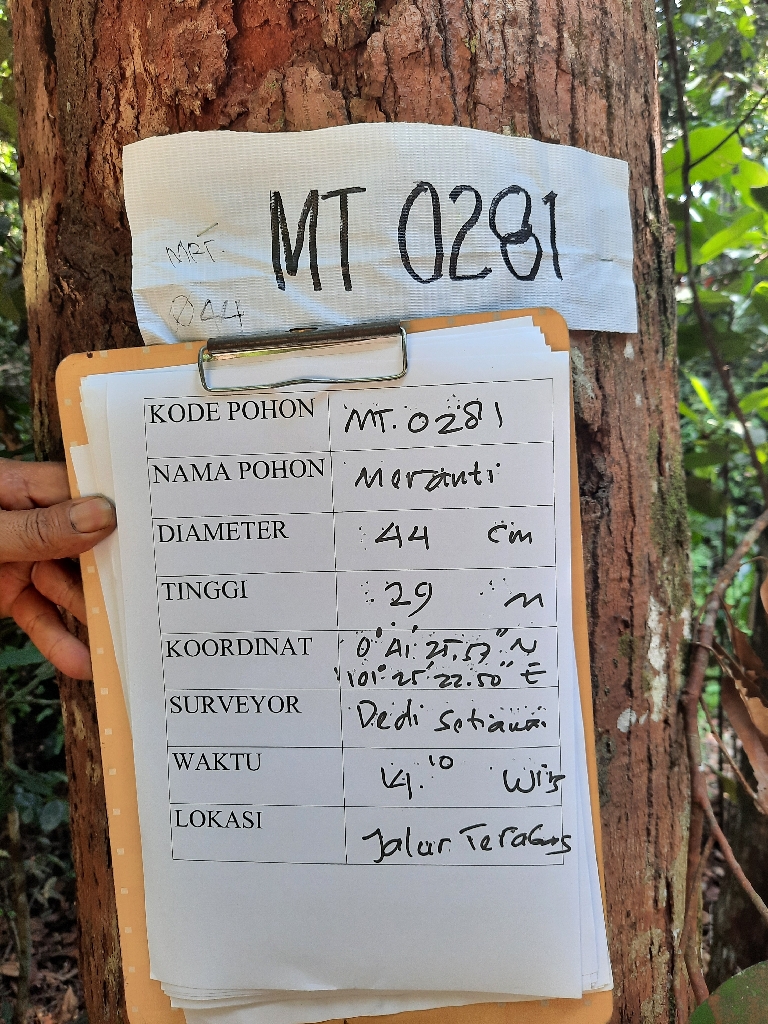 MT 0281
MRT.
044
KODE POHON MT. 0281
NAMA POHON Meranti
DIAMETER 44 cm
TINGGI 29 m
KOORDINAT 0° 41' 25.57" N
101° 25' 22.50" E
SURVEYOR Dedi Setiawan
WAKTU 14.10 WIB
LOKASI Jalur Terabas